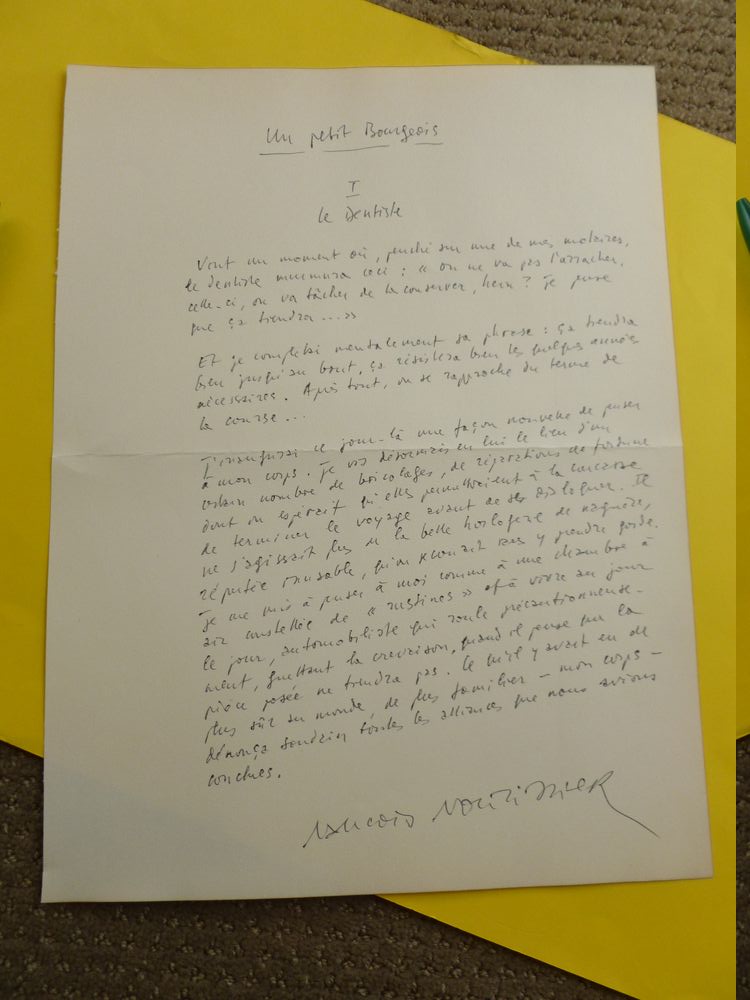 Un petit Bourgeois
I
Le Dentiste
Vint un moment où, penché sur une de mes molaires,
le dentiste murmura ceci : « on ne va pas l'arracher,
celle-ci, on va tâcher de la conserver, hein ? Je pense
que ça tiendra ... »
Et je complétai mentalement sa phrase : ça tiendra
bien jusqu'au bout, ça résistera bien les quelques années
nécessaires. Après tout, on se rapproche du terme de
la course ...
J'inaugurai ce jour-là une façon nouvelle de penser
à mon corps. Je vis désormais en lui le lieu d'un
certain nombre de bricolages, de réparations de fortune
dont on espérait qu'elles permettraient à la carcasse
de terminer le voyage avant de se disloquer. Il
ne s'agissait plus de la belle horlogerie de naguère,
réputée inusable, qu'on secouait sans y prendre garde.
Je me mis à penser à moi comme à une chambre à
air constellée de « rustines » et à vivre au jour
le jour, automobiliste qui roule précautionneuse-
ment, guettant la crevaison, quand il pense que la
pièce posée ne tiendra pas. Ce qu'il y avait eu de
plus sûr au monde, de plus familier – mon corps –
dénonça soudain toutes les alliances que nous avions
conclues.
François Nourissier